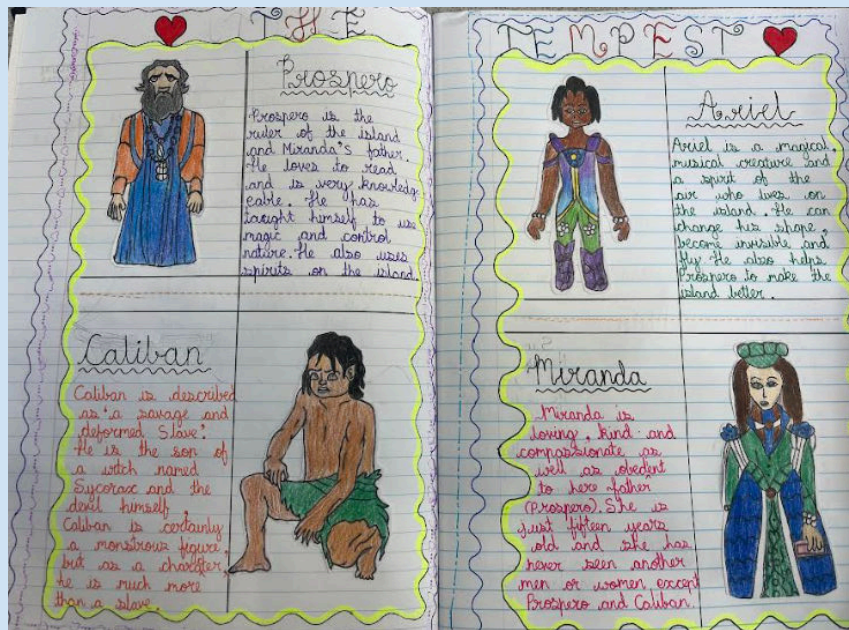 THE
Prospero
Prospero is the
ruler of the island
and Miranda's father.
He loves to read
and is very knowledg
eable. He has
taught himself to us
magic and control
nature. He also uses
spirits on the island
Caliban
Caliban is described
as 'a savage and
deformed slave'.
He is the son of
a witch named
Sycorax and the
devil himself.
Caliban is certainly
a monstrous figure,
but as a charater,
he is much more
than a slave.
TEMPEST
Ariel
Ariel is a magical,
musical creature and
a spirit of the
air who lives on
the island. He can
change his shape,
become invisible and
fly. He also helps
Prospero to make the
island better.
Miranda
Miranda is
loving, kind and
compassionate as
well as obedent
to here father
(Prospero). She is
just fifteen years
old and she has
never seen another
men or women except
Prospero and Caliban.